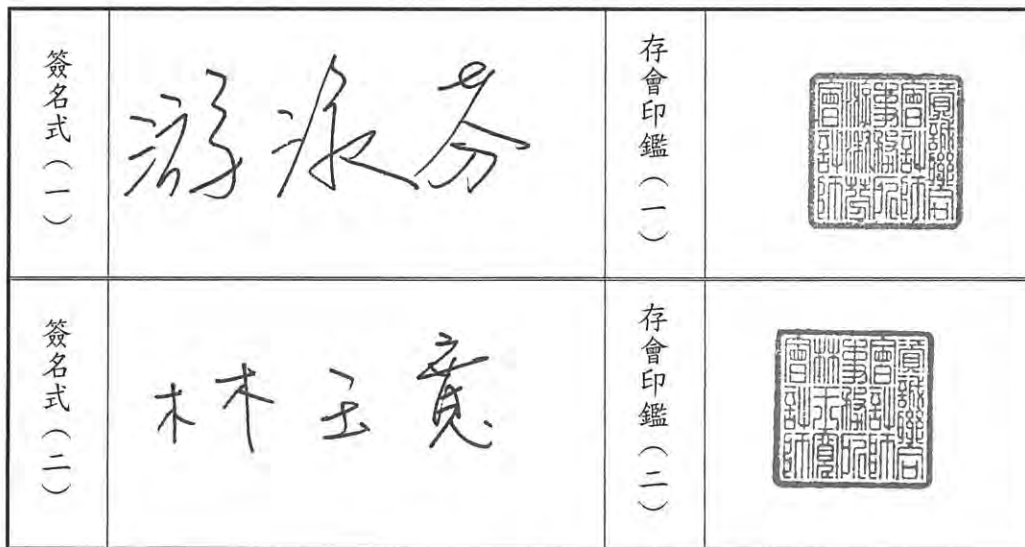 簽名式（一）
游淑芬
存會印鑑（一）
資誠聯合
會計師
事務所
游淑芬
會計師
簽名式（二）
林玉寬
存會印鑑（二）
資誠聯合
會計師
事務所
林玉寬
會計師